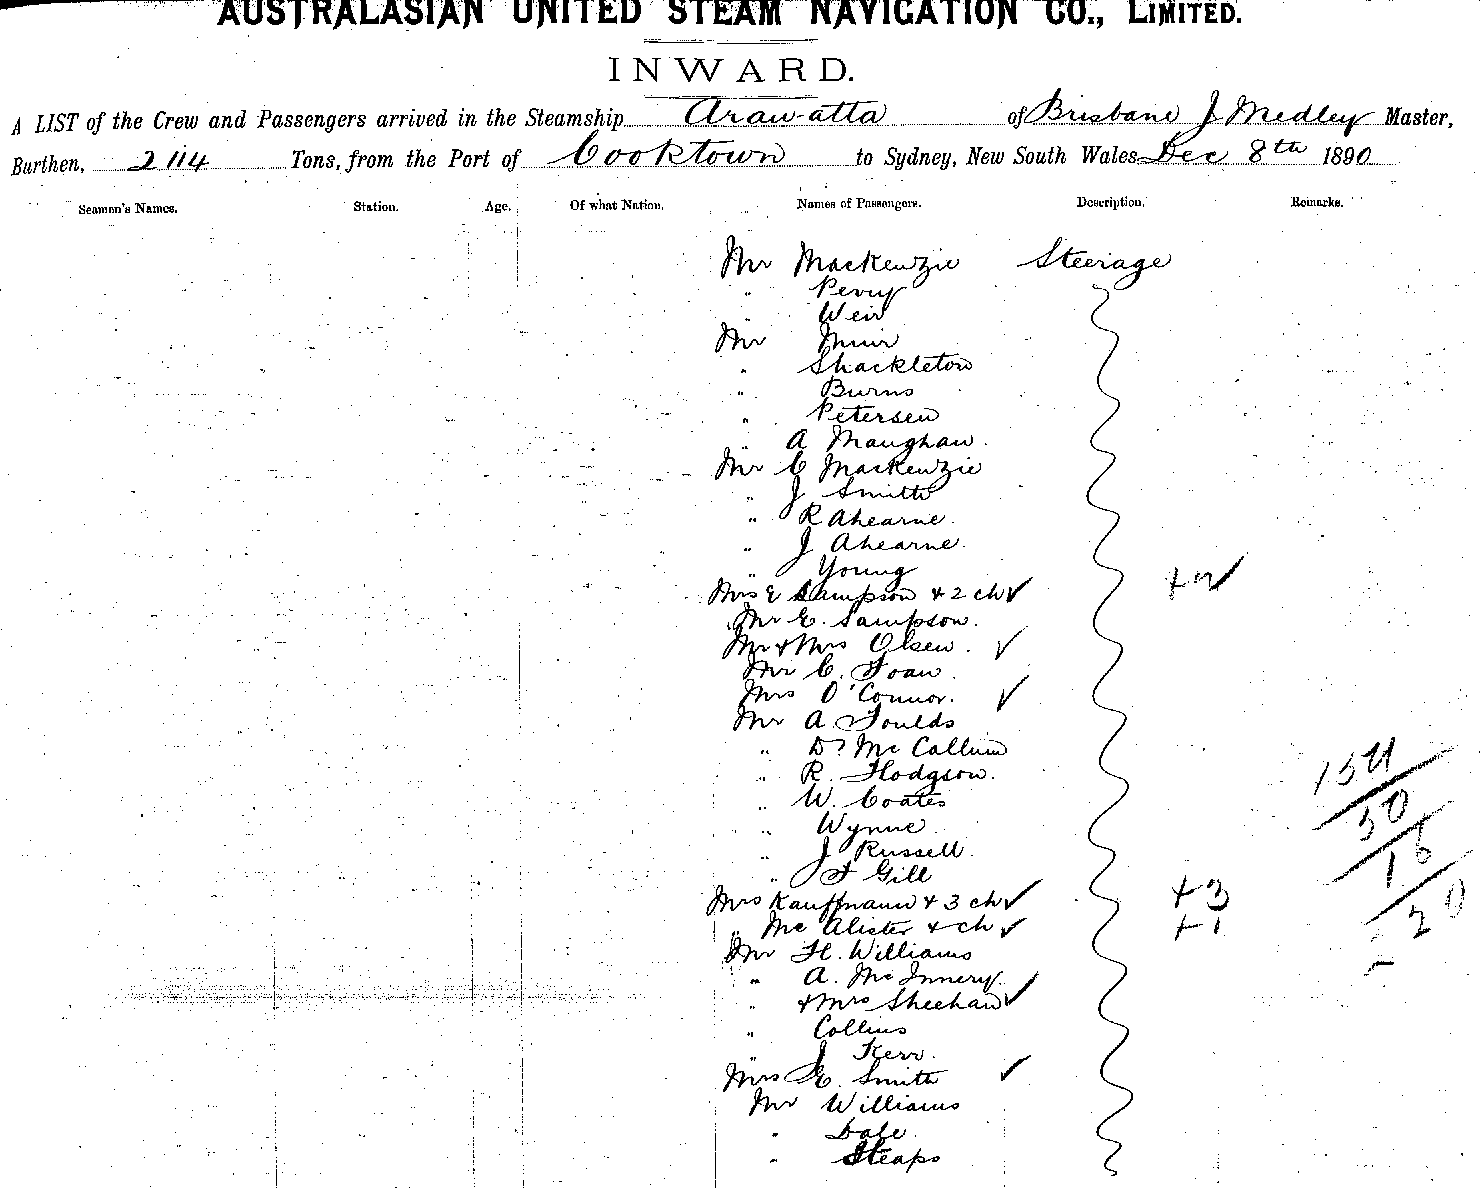 AUSTRALASIAN UNITED STEAM NAVIGATION CO., LIMITED.
INWARD.
A LIST of the Crew and Passengers arrived in the Steamship Arawatta of Brisbane J Medley Master,
Burthen, 2114 Tons, from the Port of Cooktown to Sydney, New South Wales Dec 8th 1890
Seamen's Names. Station. Age. Of what Nation. Names of Passengers. Description. Remarks.
Mr Mackenzie Steerage
" Perry
" Weir
Mr Muir
" Shackleton
" Burns
" Petersen
" A Maughan.
Mr C Mackenzie
" J Smith
" R Ahearne.
" J Ahearne.
" Young
Mrs E Sampson + 2 ch ✓ +2 ✓
Mr E. Sampson.
Mr + Mrs Olsen. ✓
Mr C. Foan.
Mrs O'Connor. ✓
Mr A Foulds
" Dr McCallum
" R. Hodgson.
" W. Coates
" Wynne
" J Russell.
" F Gill
Mrs Kauffmann + 3 ch ✓ +3
" McAlister + ch ✓ +1
Mr H. Williams
" A. McInnery.
" + Mrs Sheehan ✓
" Collins
" J Kerr.
Mrs E. Smith ✓
Mr Williams
" Dale.
" Steaps
154
50
16
20